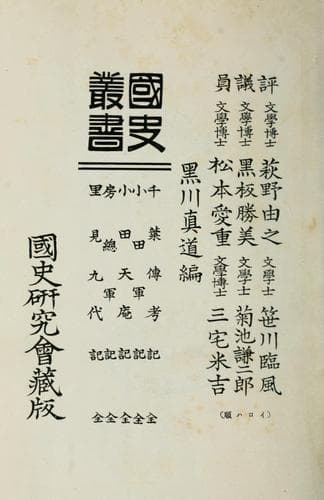 評 文學博士 萩野由之 文學士 笹川臨風
議 文學博士 黑板勝美 文學士 菊池謙二郎
員 文學博士 松本愛重 文學博士 三宅米吉
(イロハ順)
黑川真道編
國史叢書
千葉傳考記 全
小田軍記 全
小田天庵記 全
房總軍記 全
里見九代記 全
國史硏究會藏版